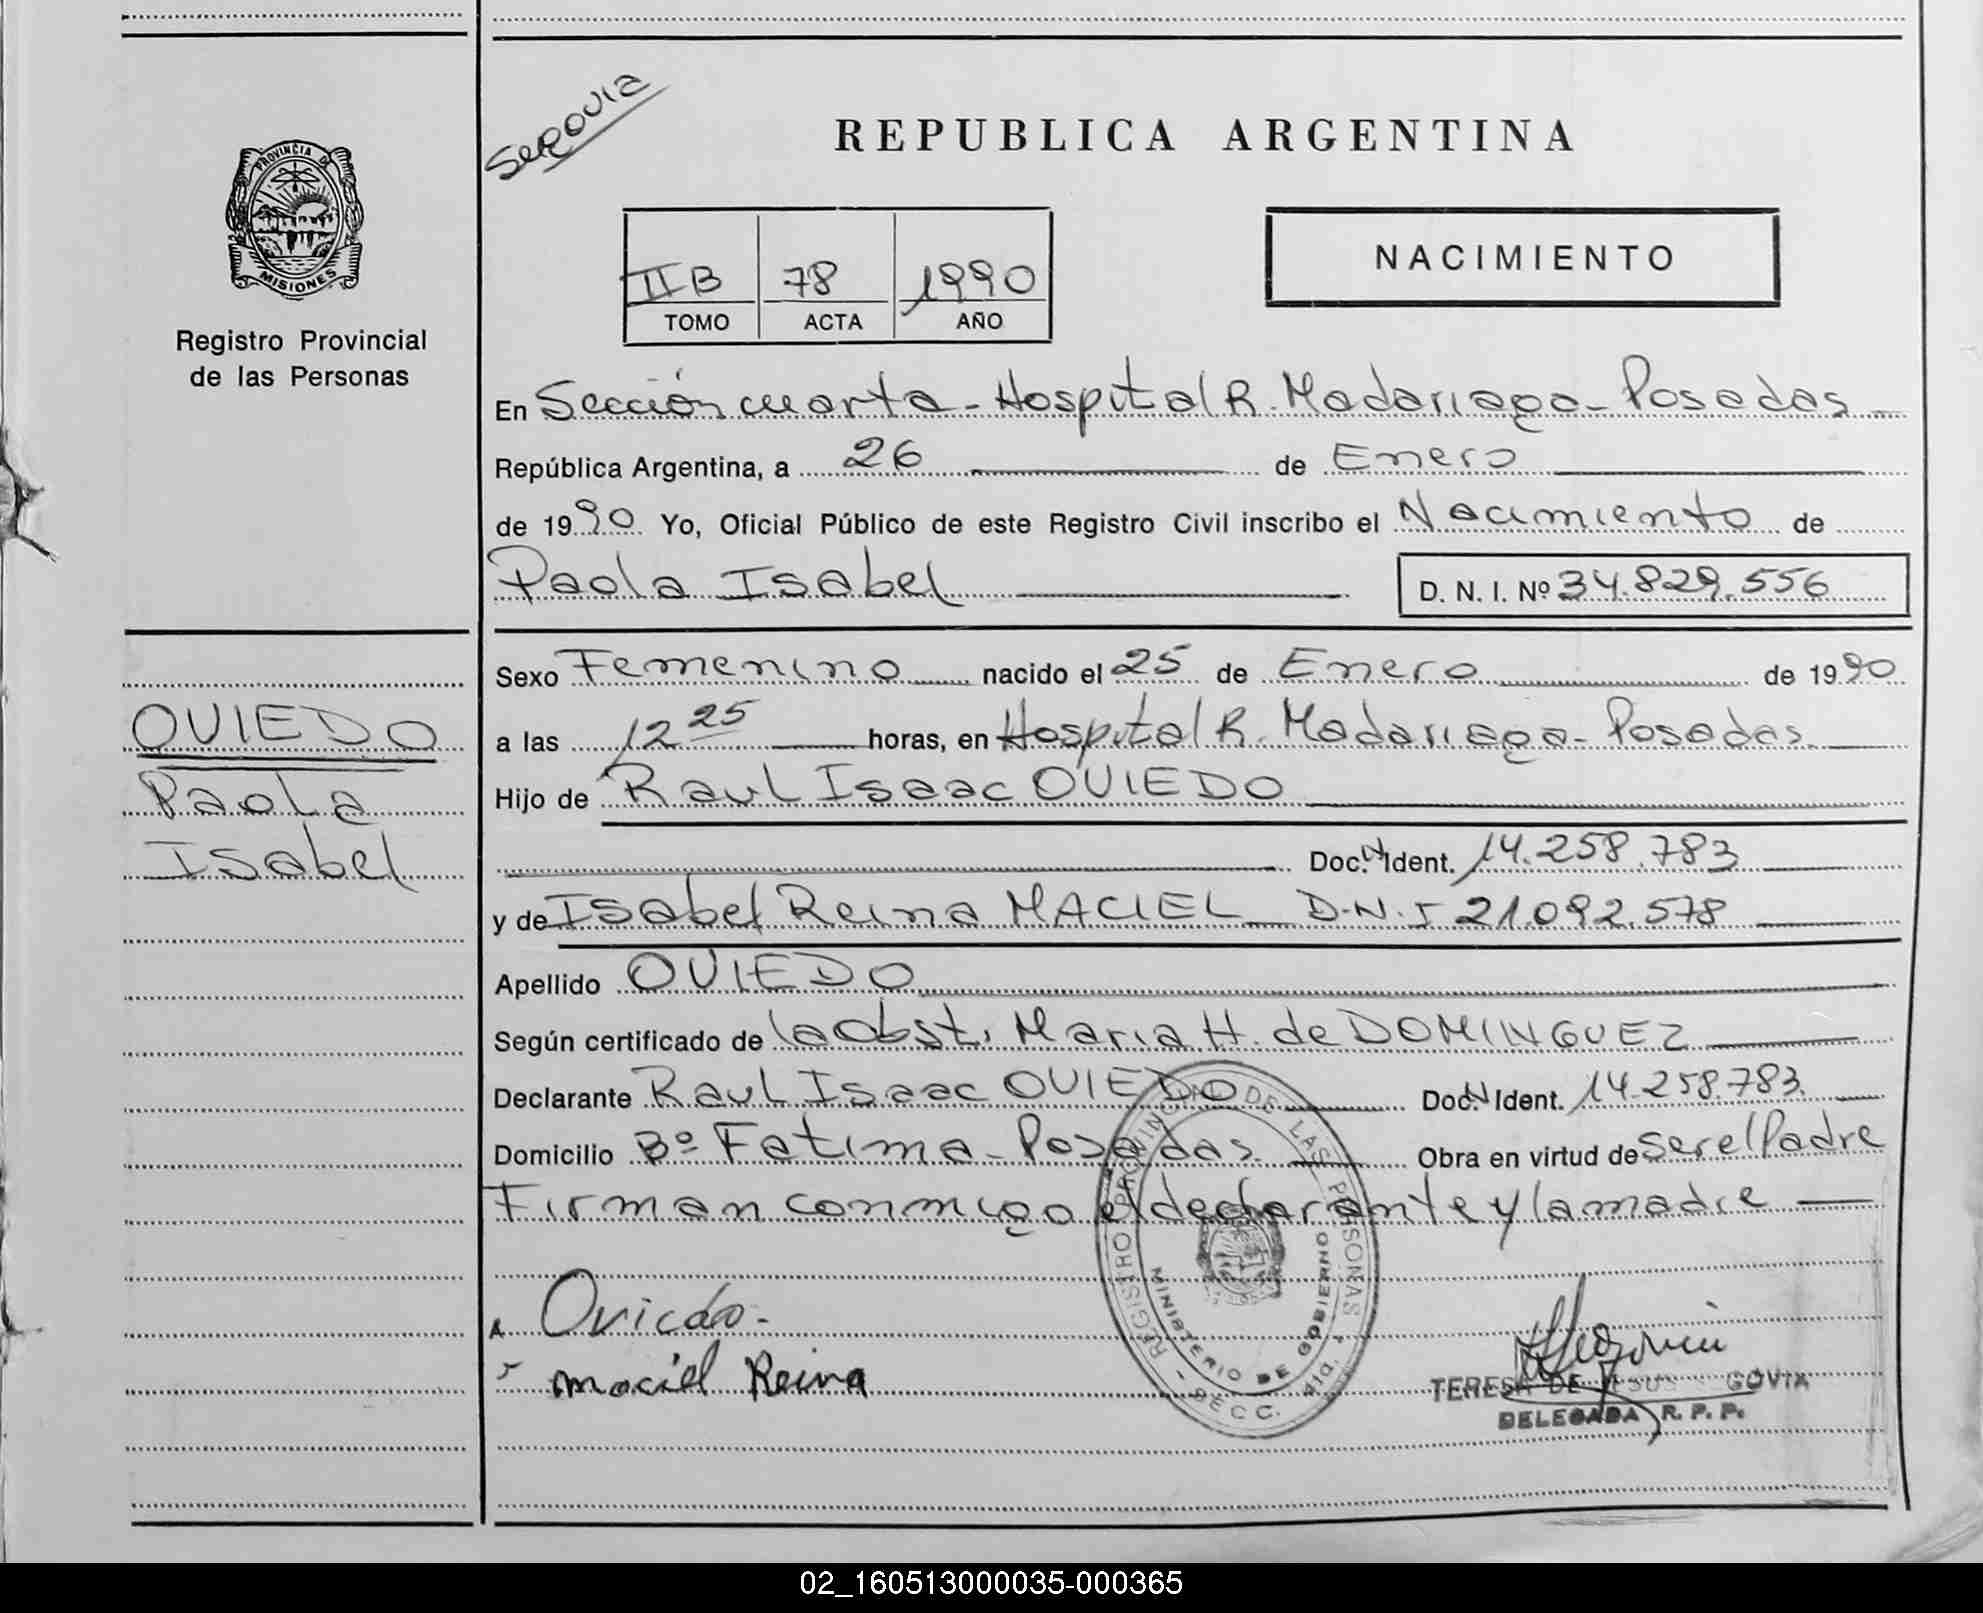 Segovia
REPUBLICA ARGENTINA
PROVINCIA DE
MISIONES
Registro Provincial
de las Personas
II B 78 1990
TOMO ACTA AÑO
NACIMIENTO
En Sección cuarta - Hospital R. Madariaga - Posadas
República Argentina, a 26 de Enero
de 1990 Yo, Oficial Público de este Registro Civil inscribo el Nacimiento de
Paola Isabel D. N. I. Nº 34.829.556
Sexo Femenino nacido el 25 de Enero de 1990
a las 12 25 horas, en Hospital R. Madariaga - Posadas.
Hijo de Raul Isaac OVIEDO
Doc. N Ident. 14.258.783
y de Isabel Reina MACIEL D.N.I 21.092.578
Apellido OVIEDO
Según certificado de la Obst. Maria H. de DOMINGUEZ
Declarante Raul Isaac OVIEDO Doc. N Ident. 14.258.783.
Domicilio Bº Fatima - Posadas Obra en virtud de ser el Padre
Firman conmigo el declarante y la madre
OVIEDO
Paola
Isabel
Oviedo.-
maciel Reina
REGISTRO PROVINCIAL DE LAS PERSONAS
MINISTERIO DE GOBIERNO
SECC. 4ta
TERESA DE JESUS SEGOVIA
DELEGADA R. P. P.
02_160513000035-000365